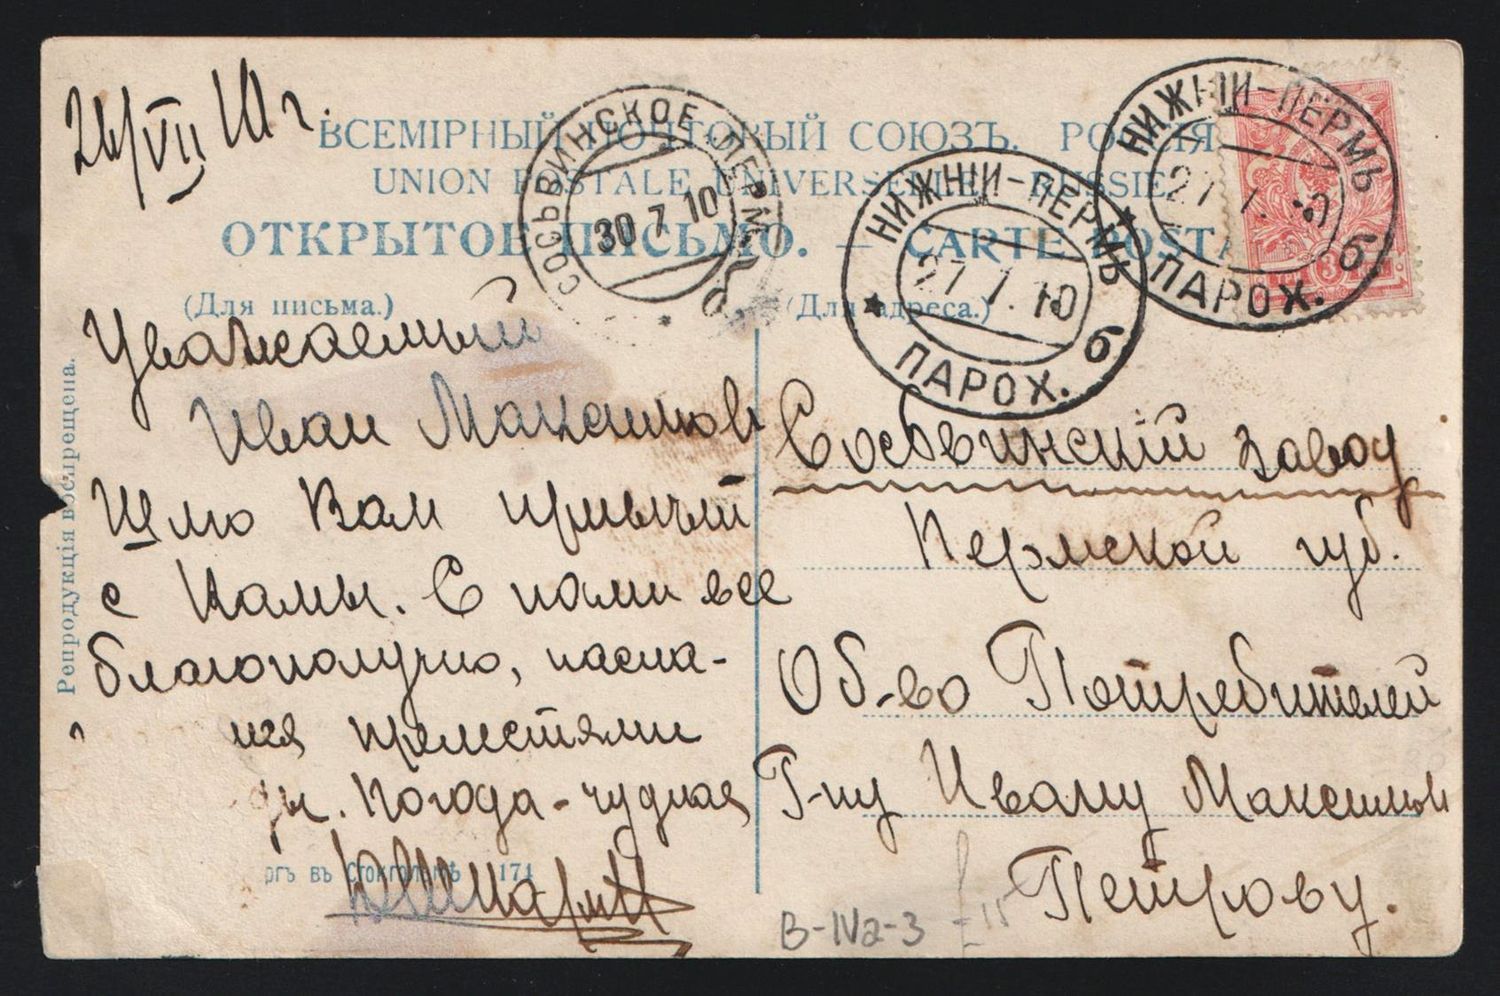 26/VII 10 г.
ВСЕМІРНЫЙ ПОЧТОВЫЙ СОЮЗЪ. РОССІЯ
UNION POSTALE UNIVERSELLE. RUSSIE
ОТКРЫТОЕ ПИСЬМО. — CARTE POSTA
(Для письма.)
(Для адреса.)
СОСЬВИНСКОЕ ПЕРМ.
30 7 10
НИЖНІЙ-ПЕРМЬ
27 7. 10
б
ПАРОХ.
НИЖНІЙ-ПЕРМЬ
27 7. 10
б
ПАРОХ.
3
Уважаемый
Иван Максимов
Шлю Вам привет
с Камы. С нами все
благополучно, насла-
прелестями
Погода - чудная
Сосьвинскій завод
Пермской губ.
Об-во Потребителей
Г-ну Ивану Максимов
Петрову.
Репродукція воспрещена.
ргъ въ Стокгольмѣ 171
B-IVa-3
15